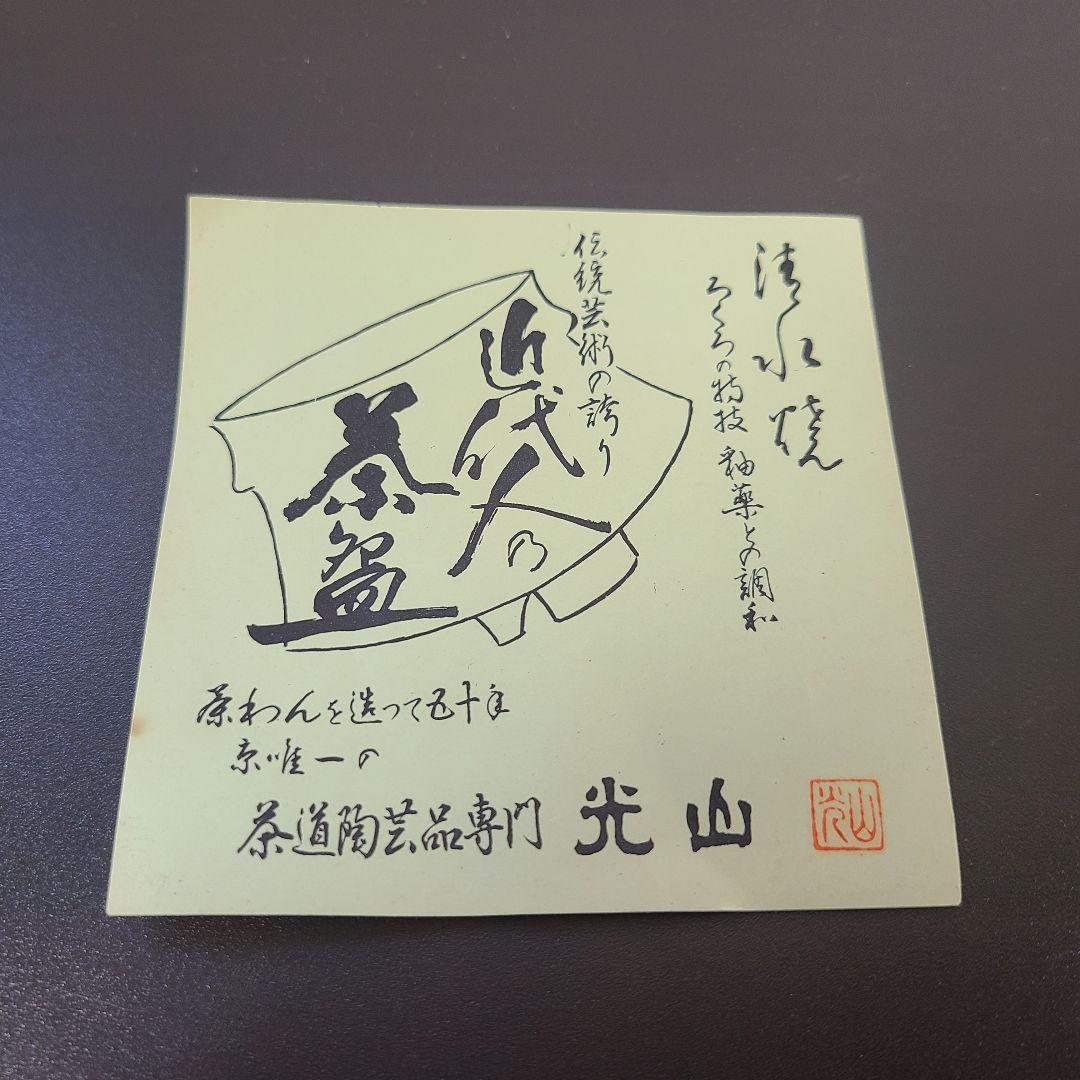 清水焼
ろくろの特技 釉薬との調和
伝統芸術の誇り
近代人の
茶盌
茶わんを造って五十年
京唯一の
茶道陶芸品専門 光山
光山